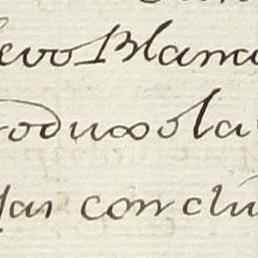 evo Blanc
roduxo la
las conclu